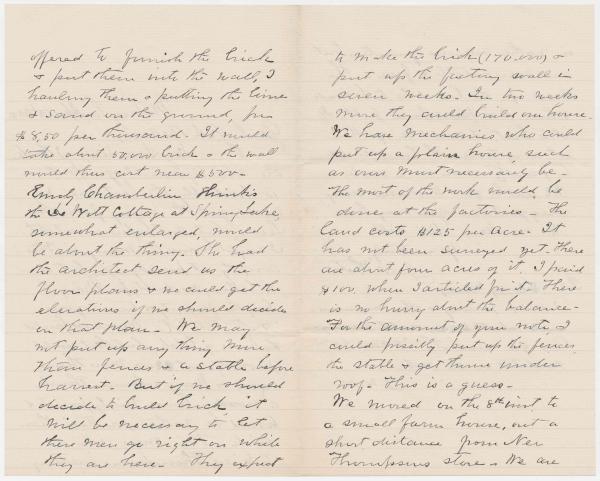 offered to furnish the brick
& put them into the wall, I
hauling them & putting the lime
& sand on the ground, for
$8.50 per thousand. It would
take about 50,000 brick & the wall
would thus cost near $500-
Emily Chamberlin thinks
the De Witt Cottage at Spring Lake
somewhat enlarged, would
be about the thing. She had
the architect send us the
floor plans & we could get the
elevations if we should decide
on that plan. We may
not put up any thing more
than fences & a stable before
harvest. But if we should
decide to build brick it
will be necessary to let
these men go right on while
they are here. They expect
to make the brick (170.000) &
put up the factory wall in
seven weeks. In two weeks
more they could build our house.
We have mechanics who could
put up a plain house, such
as ours must necessarily be.
The most of the work would be
done at the factories. The
land costs $125 per acre. It
has not been surveyed yet. There
are about four acres of it. I paid
$100. when I articled for it. There
is no hurry about the balance.
For the amount of your note, I
could possibly put up the fences
the stable & get house under
roof. This is a guess.
We moved on the 8th inst to
a small farm house, out a
short distance from
Thompsons store. We are